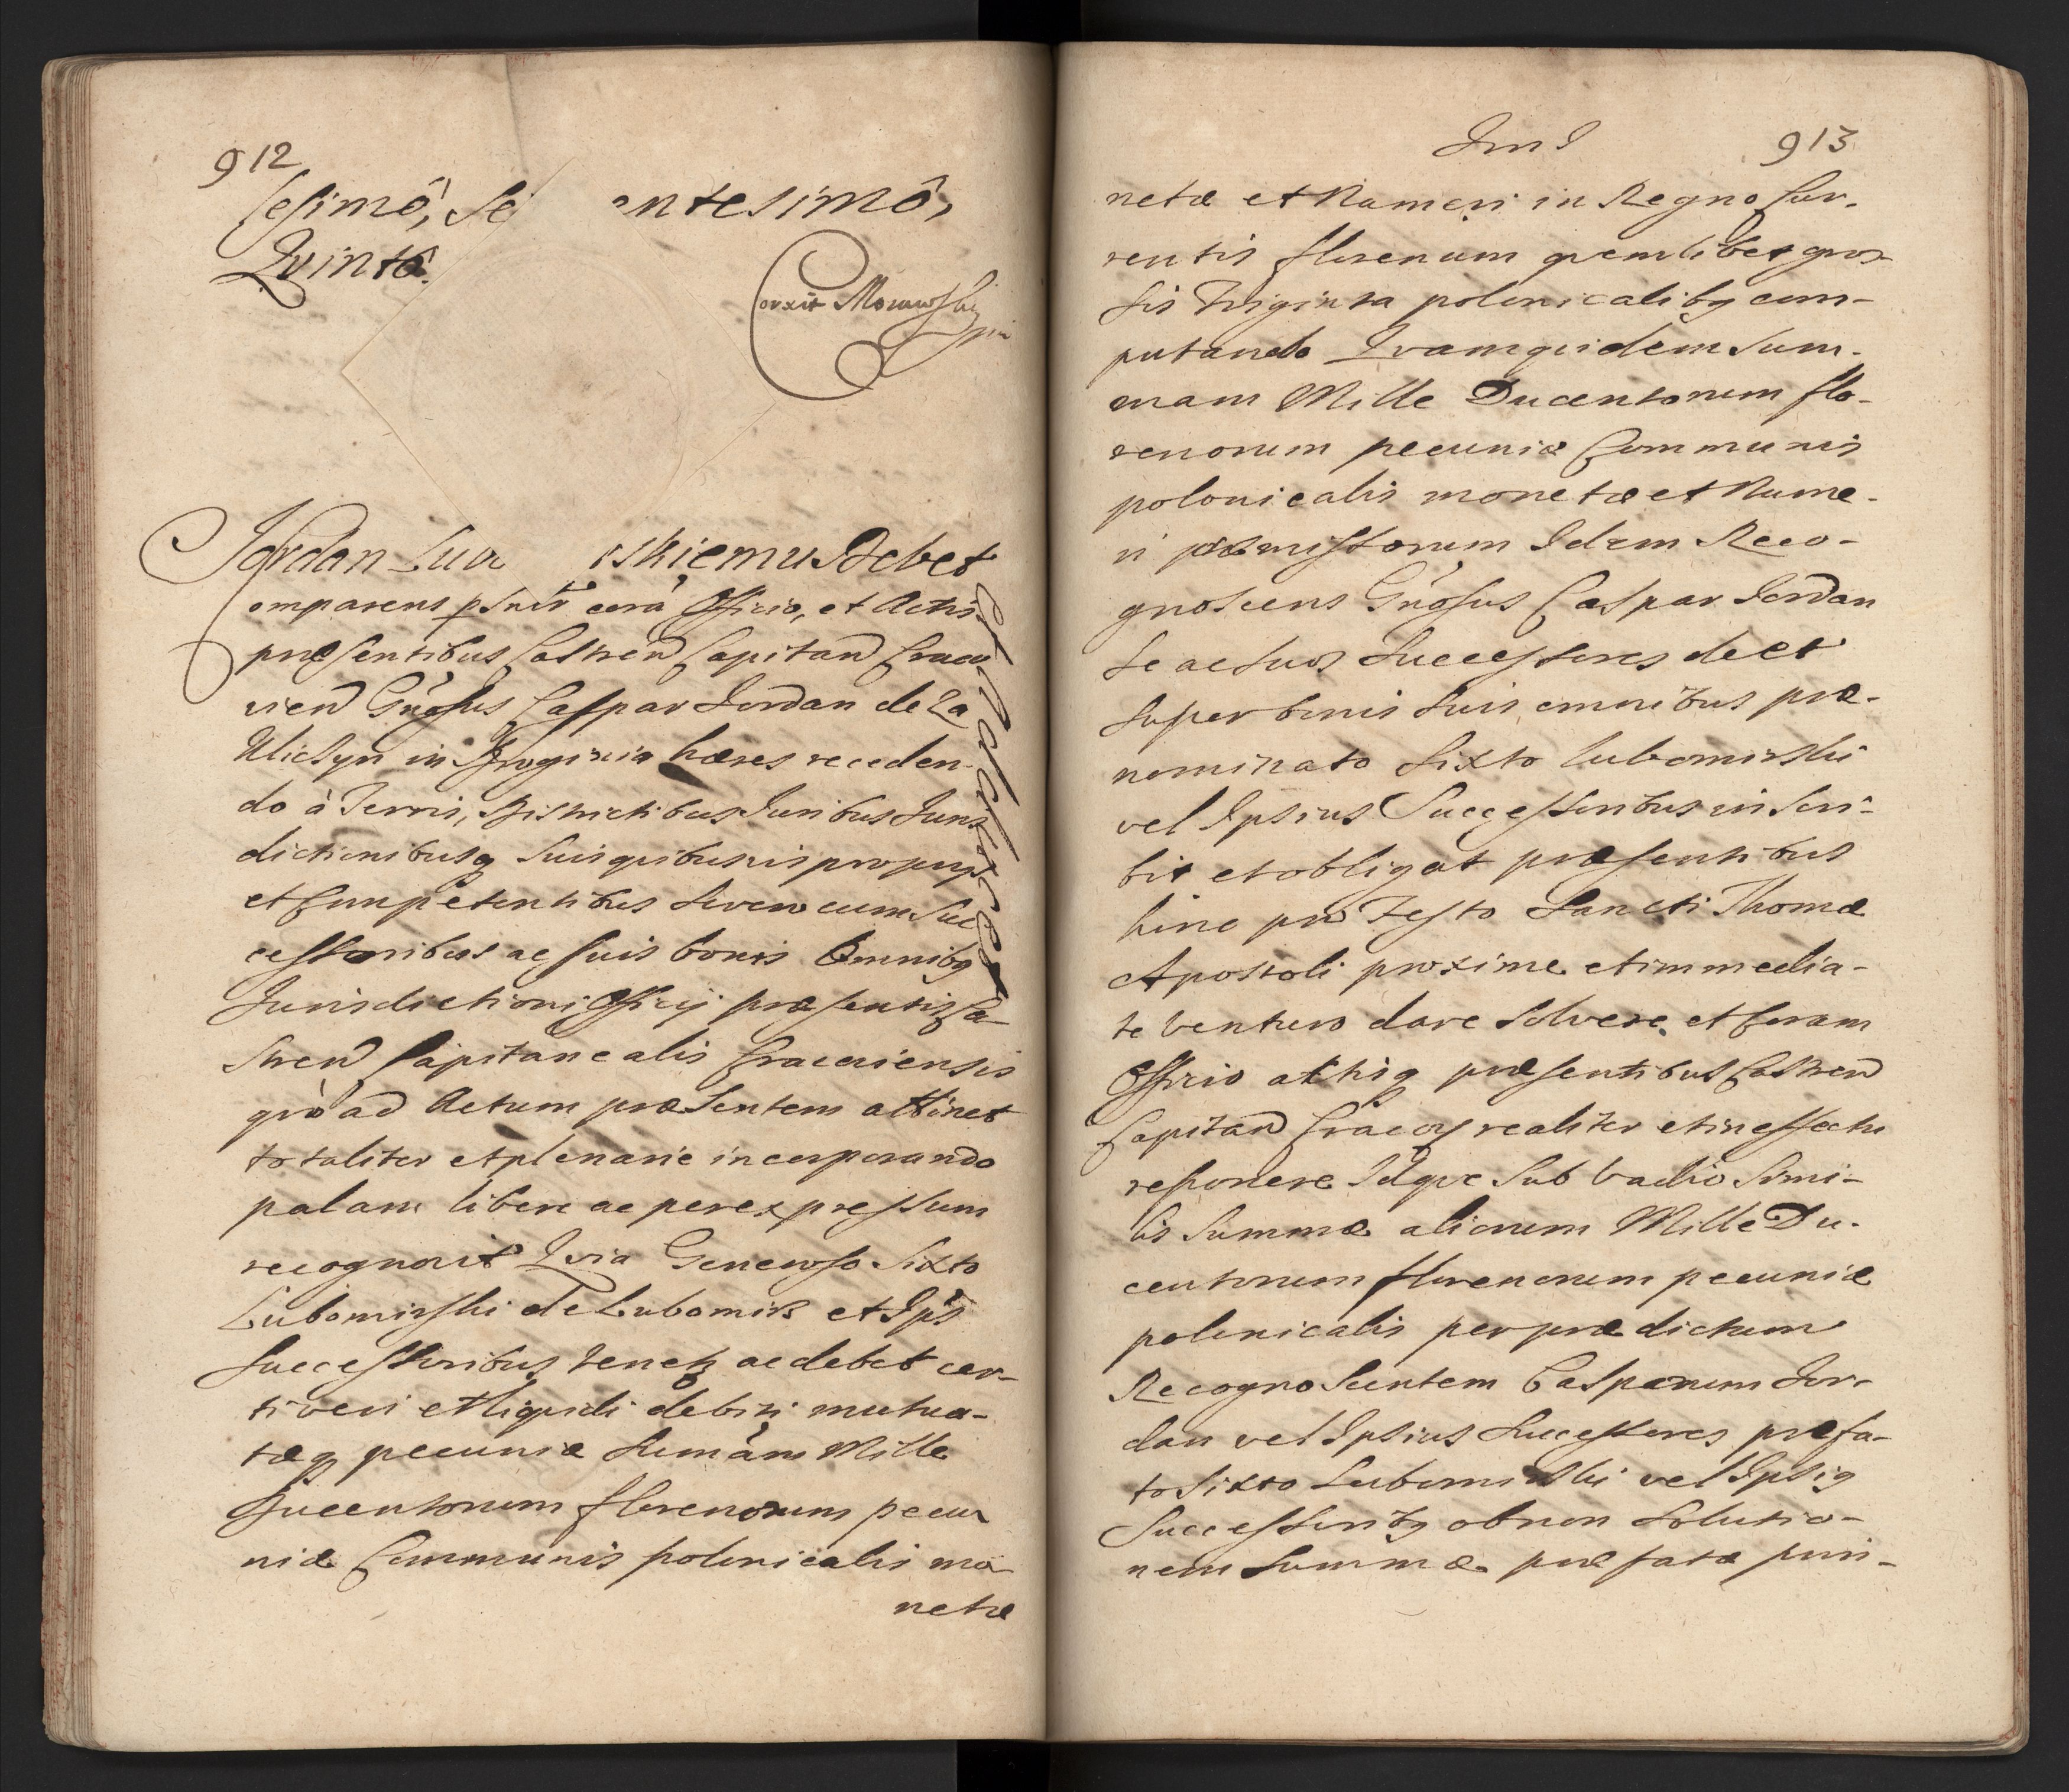 912
sesimô, Se entesimô,
Qvintô.
Corrxit Morawski
mp
Jordan Lub skiemu Debet
Comparens psnlr corà Officio, et Actis
præsentibus Castren Capitan Craco
vien Gnosus Caspar Jordan de Za
kliczyn in hæres receden-
do à Terris, Districtibus Juribus Juris
dictionibusq suis quibusvis proprys
et Competentibus seven cum Suc
cessoribus ac suis bonis Omnibq
Jurisdictioni Officij præsentis Ca-
stren Capitanealis Cracoviensis
qvò ad Actum præsentem attinet
totaliter et plenarie incorporando
palam libere ac per expressum
recognovit Qvia Generoso Sixto
Lubomirski de Lubomirz et Ips
Successoribus tenetz ac debet cer-
ti veri et liqvidi debiti mutua-
tæq pecuniæ Sumàm Mille
Ducentorum florenorum pecu
niæ Communis polonicalis mo-
netæ
913
netæ et Numeri in Regno Cur-
rentis florenum qvemlibet gros-
sis Triginta polonicalibq com-
putando Qvamqvidem Sum-
mam Mille Ducentorum flo-
renorum pecuniæ Communis
polonicalis monetæ et Nume-
ri præmissorum Idem Reco-
gnoscens Gnosus Caspar Jordan
se ac suos Successores de et
super bonis suis omnibus præ-
nominato Sixto Lubomirski
vel Ipsius Successoribus inscri-
bit et obligat præsentibus
hinc pro Festo Sancti Thomæ
Apostoli proxime et immedia-
te venturo dare solvere et Coram
Officio aktisq præsentibus Castren
Capitan Cracov realiter et in effectu
reponere Idqve Sub Vadio Simi-
lis Summæ aliorum Mille Du-
centorum florenorum pecuniæ
polonicalis per prædictum
Recognoscentem Casparum Jor-
dan vel Ipsius Successores præfa-
to Sixto Lubomirski vel Ipsiq
Successoribq ob non Solutio-
nem Summæ præfatæ prin-